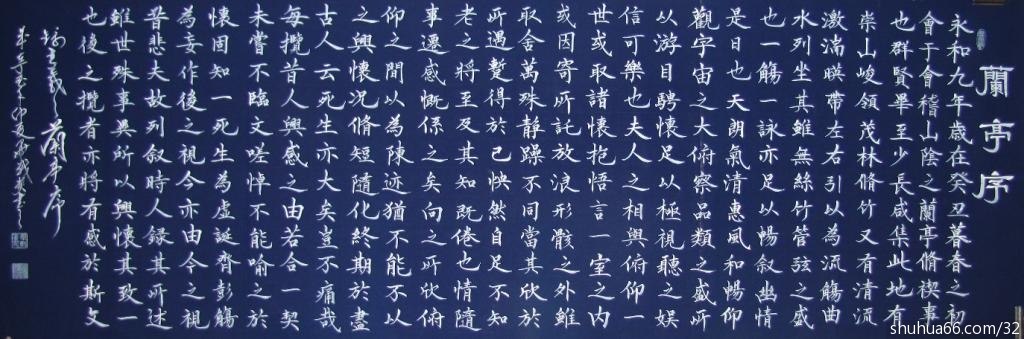 蘭亭序
永和九年歲在癸丑暮春之初
會于會稽山陰之蘭亭脩禊事
也群賢畢至少長咸集此地有
崇山峻領茂林脩竹又有清流
激湍暎帶左右引以為流觴曲
水列坐其雖無絲竹管弦之盛
也一觴一詠亦足以暢叙幽情
是日也天朗氣清惠風和暢仰
觀宇宙之大俯察品類之盛所
以游目騁懷足以極視聽之娛
信可樂也夫人之相與俯仰一
世或取諸懷抱悟言一室之內
或因寄所託放浪形骸之外雖
取舍萬殊靜躁不同當其欣於
所遇蹔得於己怏然自足不知
老之將至及其知既倦也情隨
事遷感慨係之矣向之所欣俯
仰之間以為陳迹猶不能不以
之興懷況脩短隨化終期於盡
古人云死生亦大矣豈不痛哉
每攬昔人興感之由若合一契
未嘗不臨文嗟悼不能喻之於
懷固知一死生為虛誕齊彭觴
為妄作後之視今亦由今之視
昔悲夫故列叙時人録其所述
雖世殊事異所以興懷其致一
也後之攬者亦將有感於斯文
王羲之蘭亭序
shuhua66.com/32